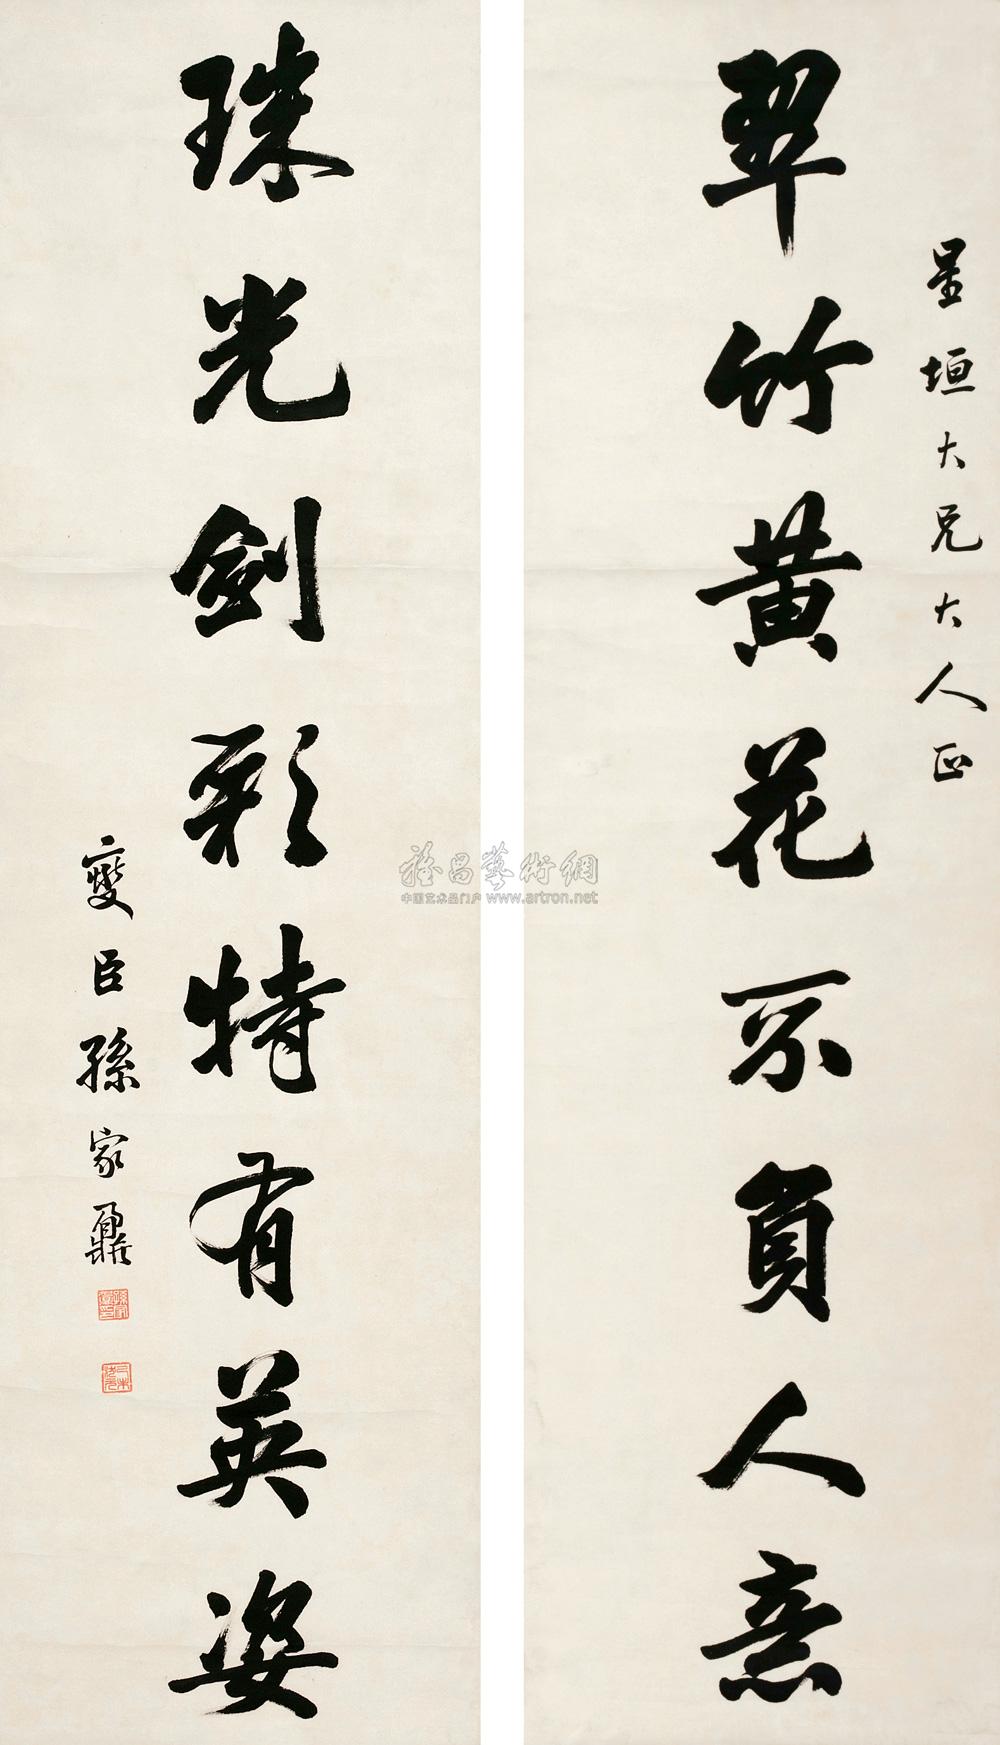 星垣大兄大人正
翠竹黄花不負人意
珠光劍彩特有英姿
燮臣孫家鼐
雅昌藝術網
中国艺术品门户 www.artron.net